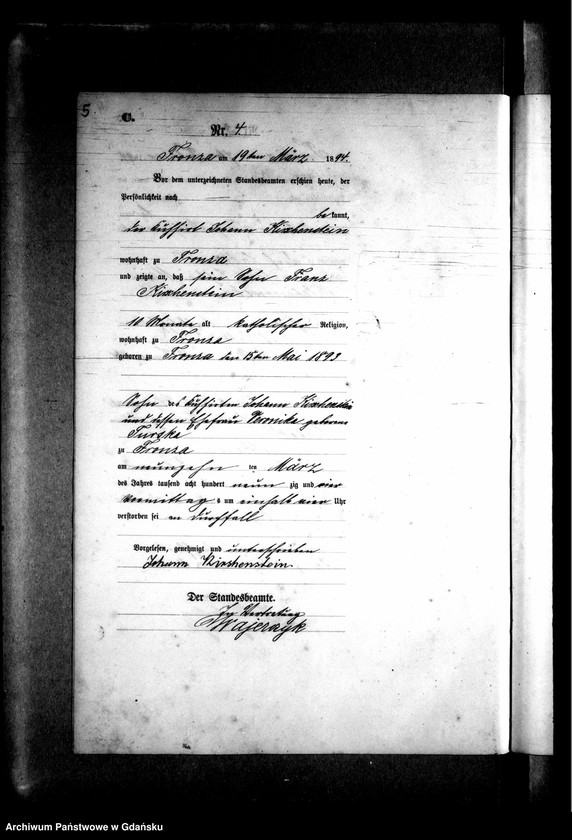 5
C.
Nr. 4.
Tronza am 19ten März 1894.
Vor dem unterzeichneten Standesbeamten erschien heute, der
Persönlichkeit nach
bekannt,
der Kuhhirt Johann Kirchenstein
wohnhaft zu Tronza
und zeigte an, daß sein Sohn Franz
Kirchenstein
10 Monate alt katholischer Religion,
wohnhaft zu Tronza
geboren zu Tronza den 15ten Mai 1893
Sohn des Kuhhirten Johann Kirchenstein
und dessen Ehefrau Veronika geborene
Turska
zu Tronza
am neunzehnten März
des Jahres tausend acht hundert neunzig und vier
Vormittags um einhalb vier Uhr
verstorben sei an Durchfall
Vorgelesen, genehmigt und unterschrieben
Johann Kirchenstein.
Der Standesbeamte.
In Vertretung
Archiwum Państwowe w Gdańsku